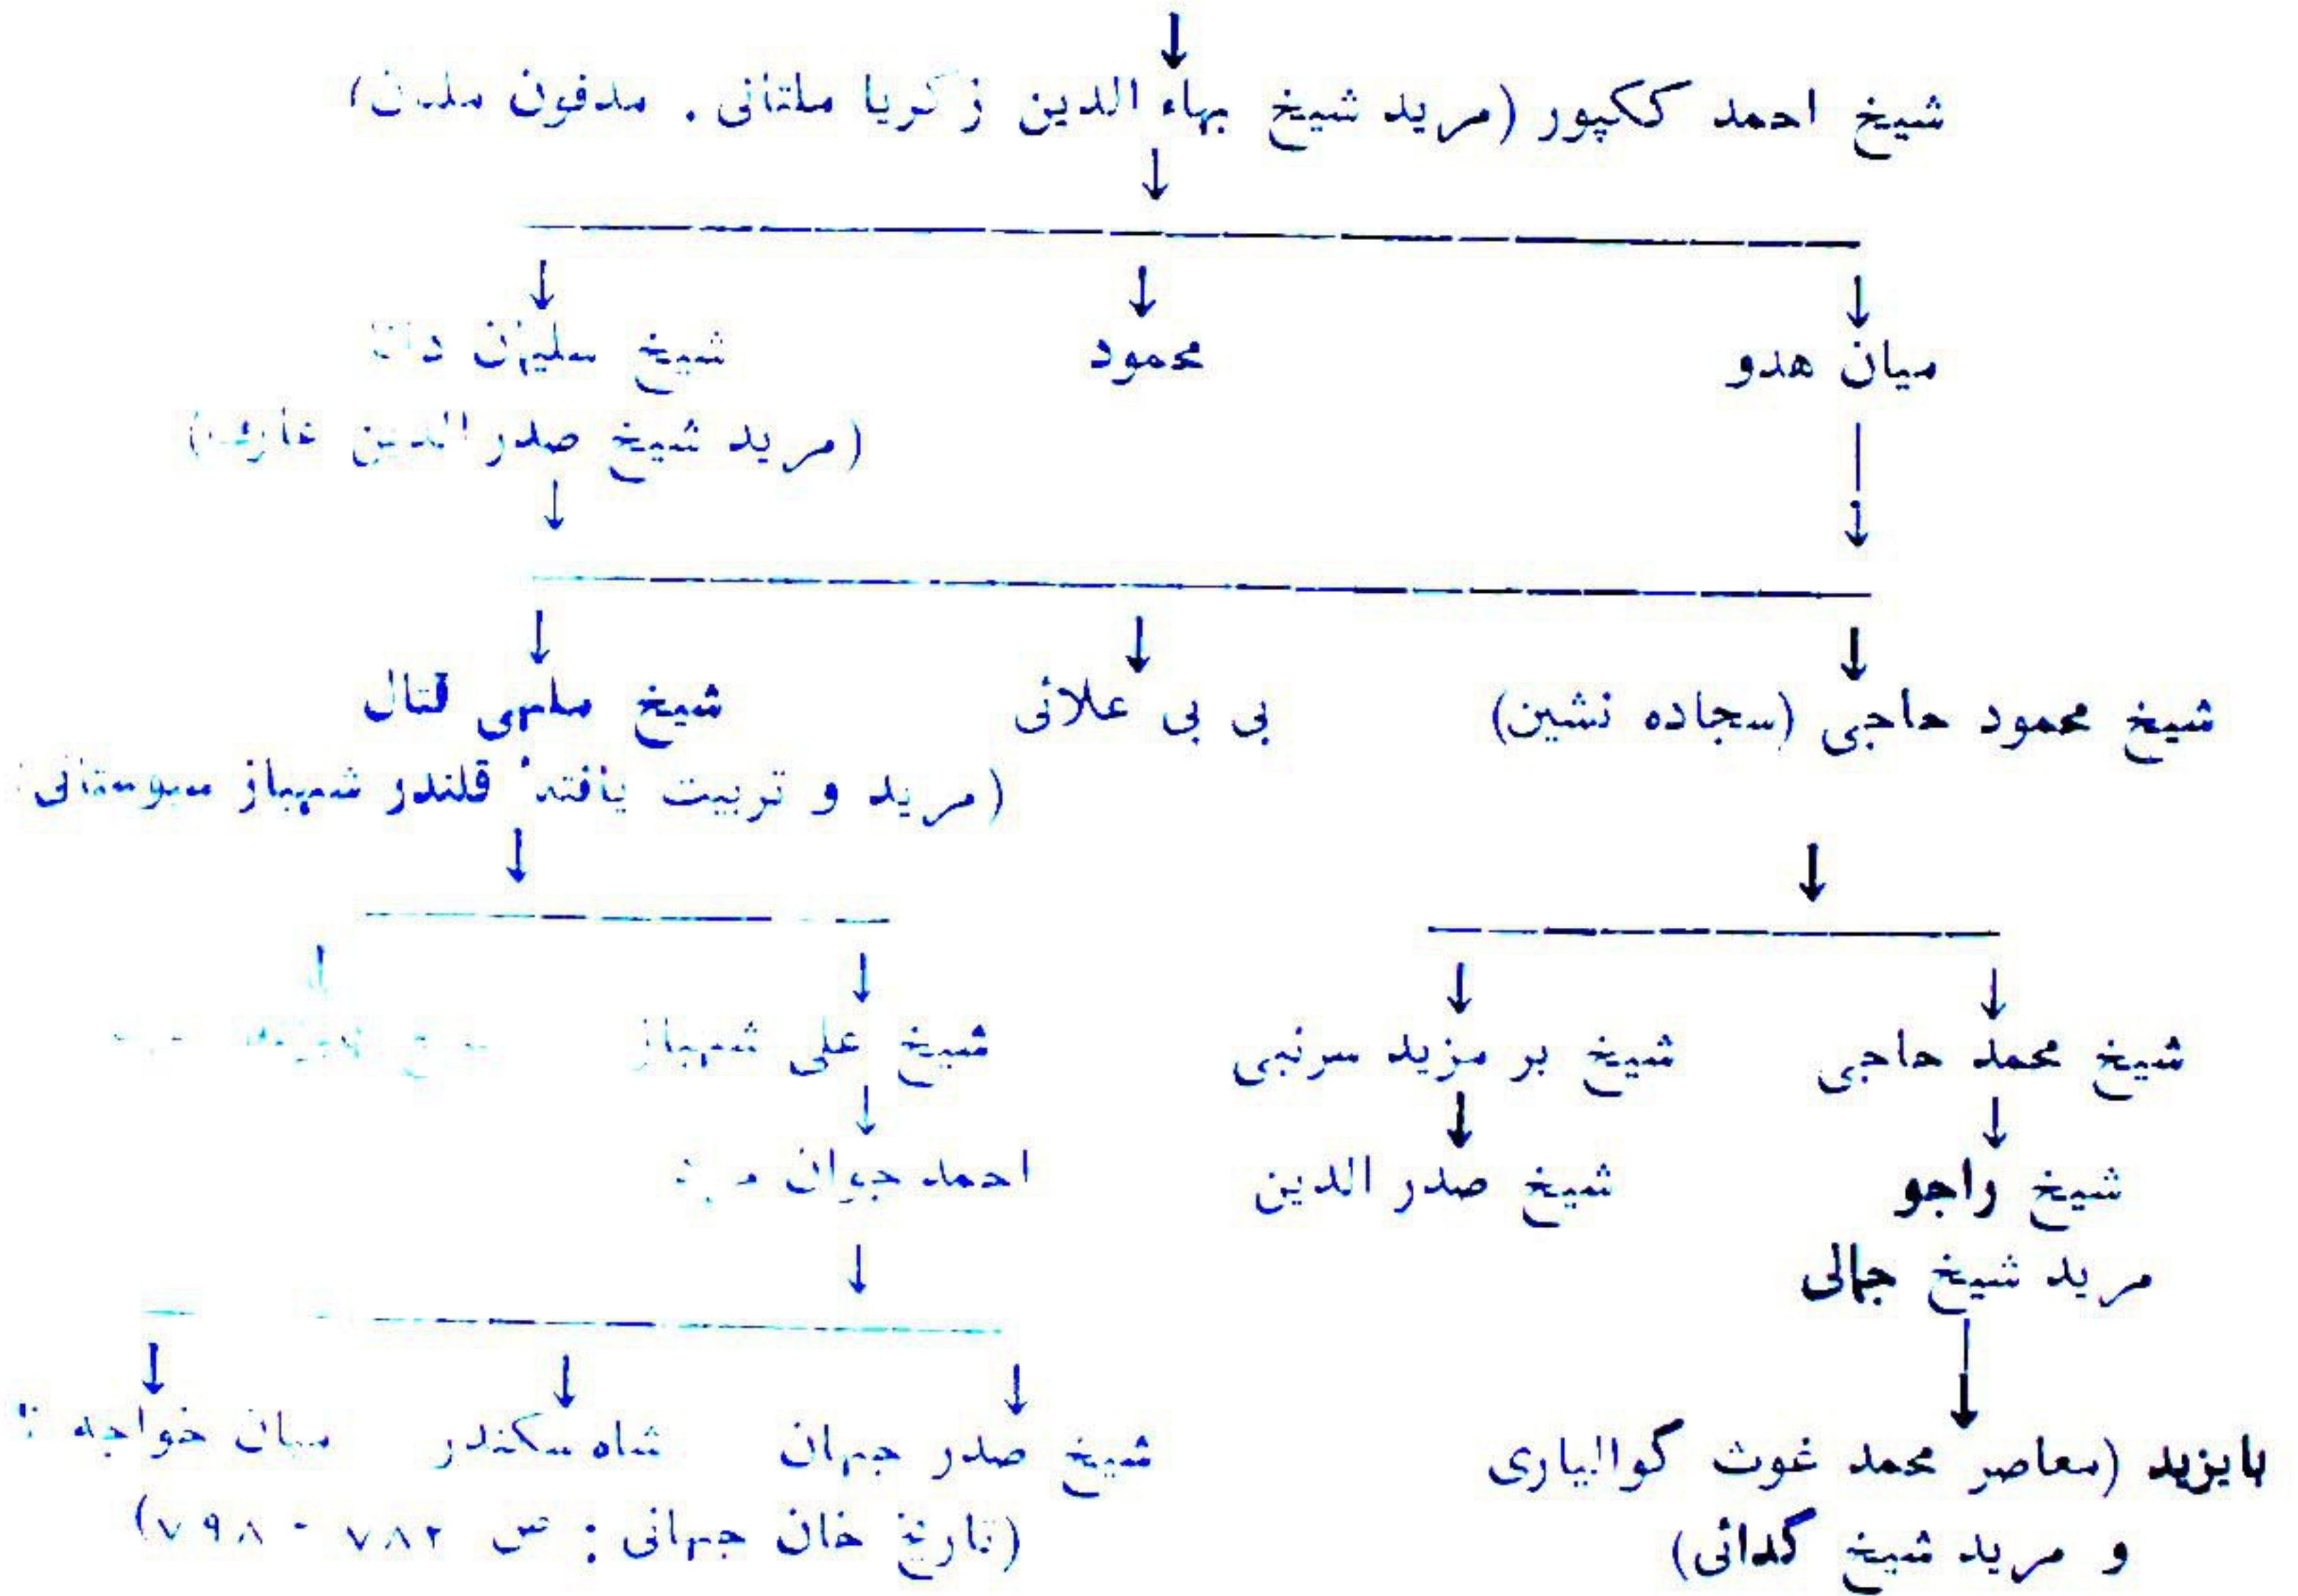 شیخ احمد ککپور (مرید شیخ بہاء الدین زکریا ملتانی . مدفون
میان ھدو
محمود
شیخ سلیمان دانا
(مرید شیخ صدر الدین عارف)
شیخ محمود حاجی (سجادہ نشین)
بی بی علائی
شیخ ملہی قتال
(مرید و تربیت یافتہٴ قلندر شہباز سیوستانی)
شیخ محمد حاجی
شیخ بر مزید سرنبی
شیخ علی شہباز
شیخ راجو
شیخ صدر الدین
احمد جوان
مرید شیخ جمالی
بایزید (معاصر محمد غوث گوالیاری
شیخ صدر جہان
شاہ سکندر
میان خواجہ
و مرید شیخ گدائی)
(تاریخ خان جہانی : ص ۷۸۲ - ۷۹۸)